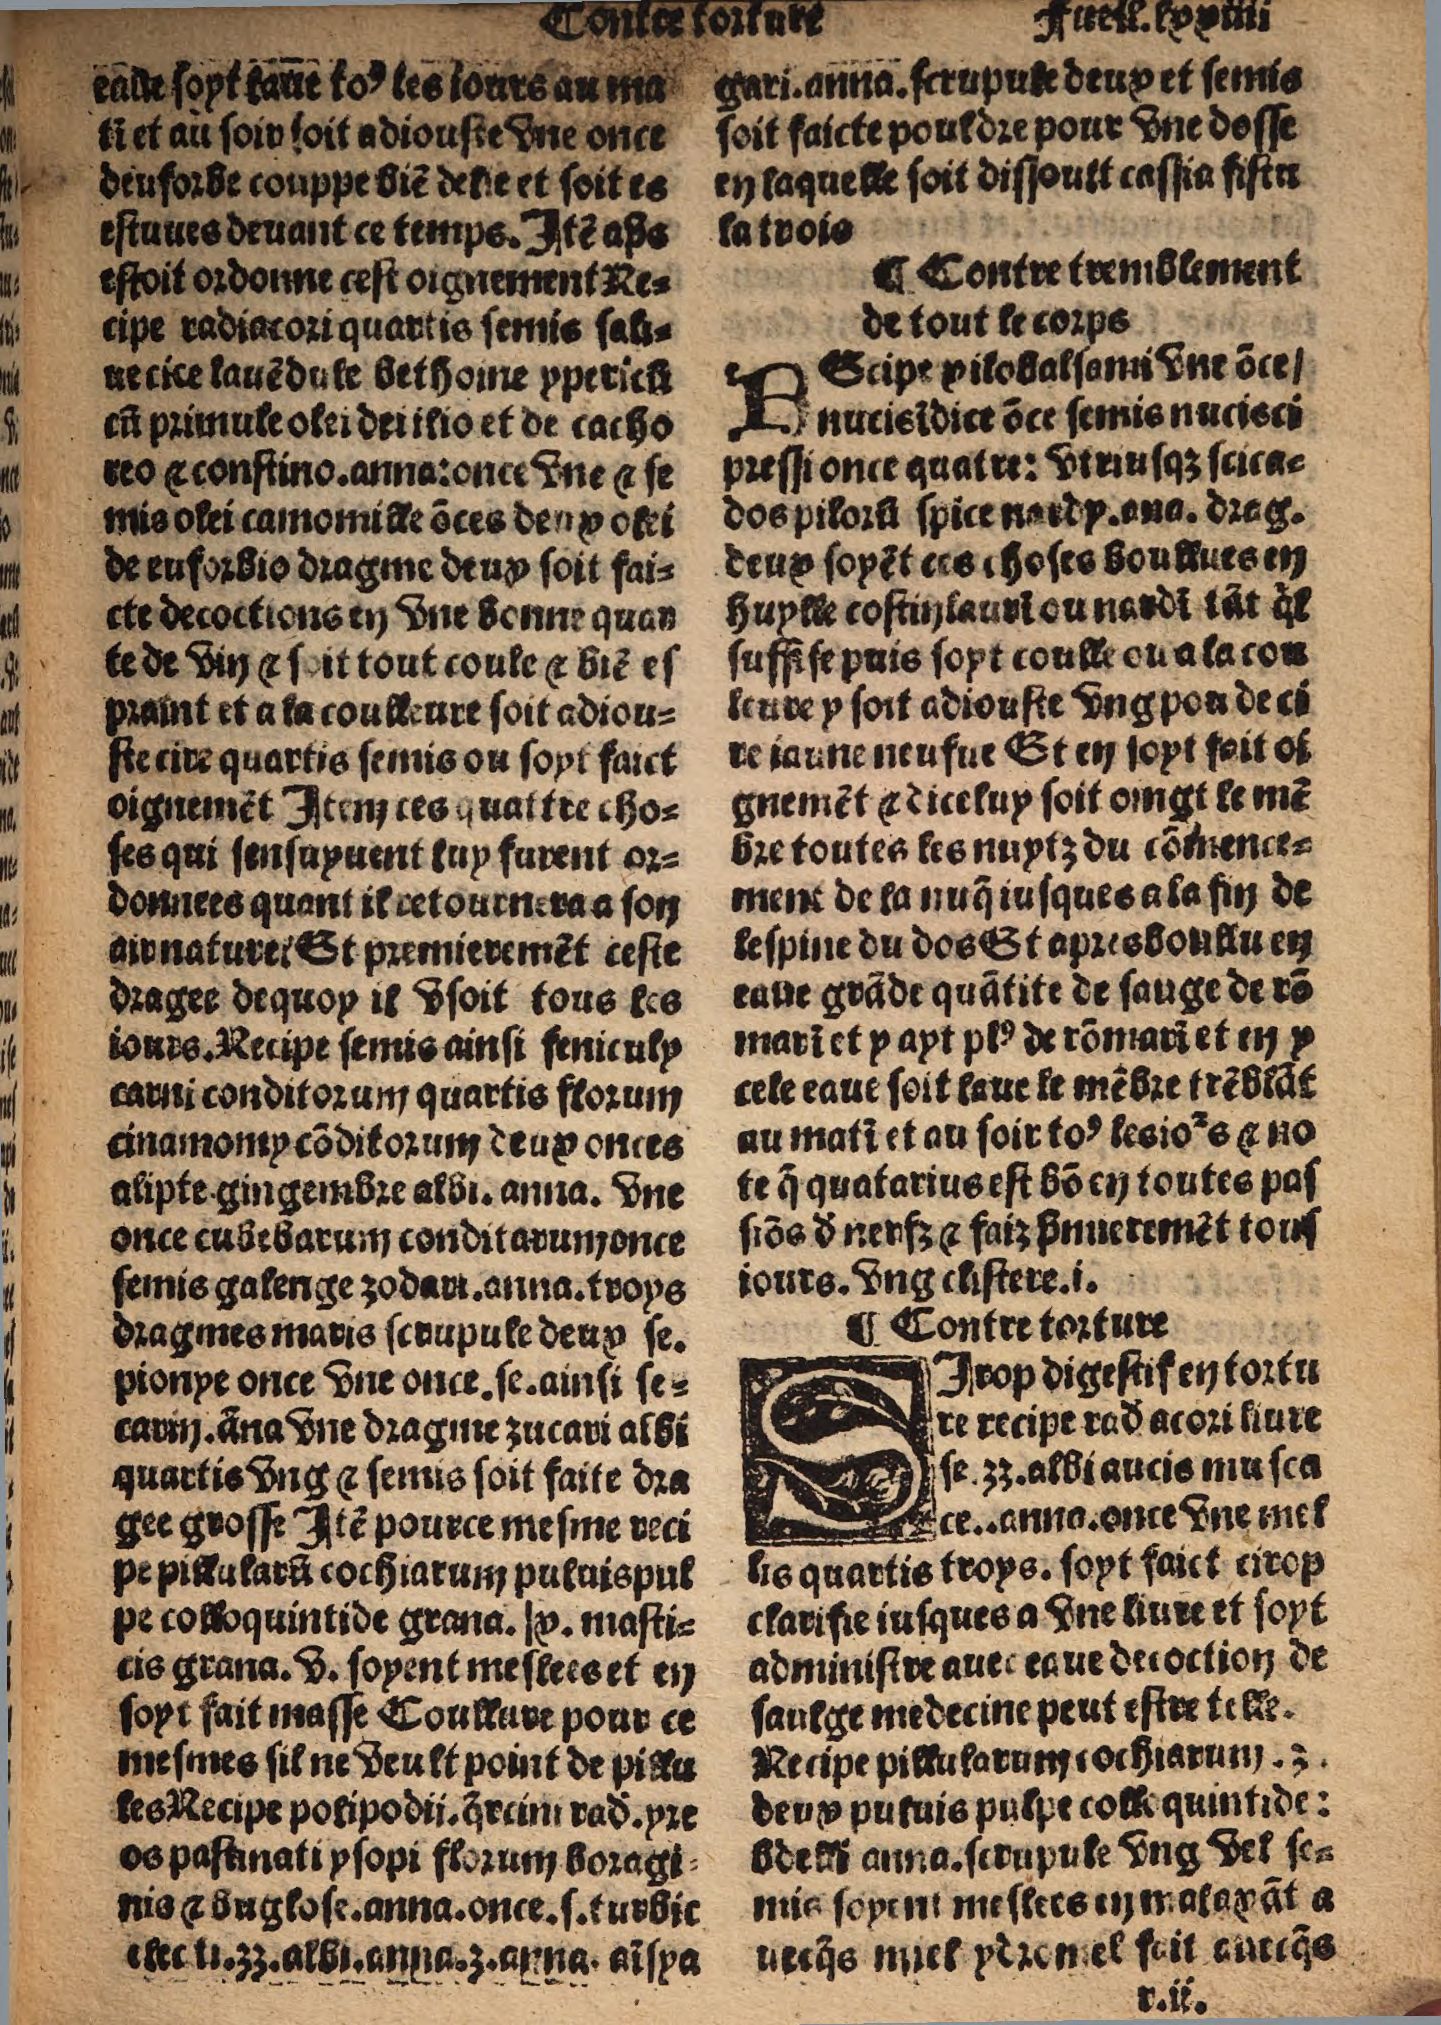 Contre torture Fueil. lxxiiii
eaue soyt laue toꝰ les iours au ma
tī et au soir soit adiouste vne once
deuforbe couppe biē delie et soit es
estuues deuant ce temps. Itē aps
estoit ordonne cest oignement Re⸗
cipe radiacori quartis semis sali⸗
ue cice lauēdule bethoine ypericū
cū primule olei dei ilio et de cacho
reo ⁊ constino. anna: once vne ⁊ se
mis olei camomille ōces deux olei
de euforbio dragme deux soit fai⸗
cte decoctions en vne bonne quar
te de vin ⁊ soit tout coule ⁊ biē es
praint et a la coulleure soit adiou⸗
ste cire quartis semis ou soyt faict
oignemēt Item ces quattre cho⸗
ses qui sensuyuent luy furent or⸗
donnees quant il retournera a son
air naturel Et premieremēt ceste
dragee dequoy il vsoit tous les
iours. Recipe semis ainsi feniculy
carni conditorum quartis florum
cinamomy cōditorum deux onces
alipte gingembre albi. anna. vne
once cubebarum conditarum once
semis galenge zodari. anna. troys
dragmes maris scrupule deux se.
pionye once vne once. se. ainsi se⸗
carin. āna vne dragme zucari albi
quartis vng ⁊ semis soit faite dra
gee grosse Itē pource mesme reci
pe pillularū cochiarum puluis pul
pe colloquintide grana. lx. masti⸗
cis grana. v. soyent meslees et en
soyt fait masse Coullure pour ce
mesmes sil ne veult point de pillu
les Recipe polipodii. q̄rcini rad̄. yre
os pastinati ysopi florum boragi⸗
nis ⁊ buglose. anna. once. s. turbic
electi. ʒʒ. albi. anna. ʒ. anna. aīsya
gari. anna. scrupule deux et semis
soit faicte pouldre pour vne dosse
en laquelle soit dissoult cassia fistu
la trois
¶ Contre tremblement
de tout le corps
REcipe xilobalsami vne ōce/
nucis īdice ōce semis nucis ci
pressi once quatre: vtriusqꝫ scica⸗
dos pilorū spice nardy. ana. drag.
deux soyēt ces choses boullues en
huylle costin laurī ou nardī tāt q̄l
suffise puis soyt coulle ou a la cou
leure y soit adiouste vng pou de ci
re iaune neufue Et en soyt fait oi
gnemēt ⁊ diceluy soit oingt le mē
bre toutes les nuytz du cōmence⸗
ment de la nuq̄ iusques a la fin de
lespine du dos Et apres boullu en
eaue grāde quātite de sauge de rō
marī et y ayt plꝰ de rōmarī et en y
cele eaue soit laue le mēbre trēblāt
au matī et au soir toꝰ les ioʳs ⁊ no
te q̄ quatarius est bō en toutes pas
siōs d̄ nerfz ⁊ faiz p̄mieremēt tous
iours. vng clistere. i.
¶ Contre torture
SIrop digestif en tortu
re recipe rad̄ acori liure
se. ʒʒ. albi aucis musca
ce.. anna. once vne mel
lis quartis troys. soyt faict cirop
clarifie iusques a vne liure et soyt
administre auec eaue decoction de
saulge medecine peut estre telle.
Recipe pillularum cochiarum. ʒ.
deux puluis pulpe colloquintide:
bdelli anna. scrupule vng vel se⸗
mis soyent meslees en malaxāt a
uecq̄s miel ydromel soit auecq̄s
r. ii.